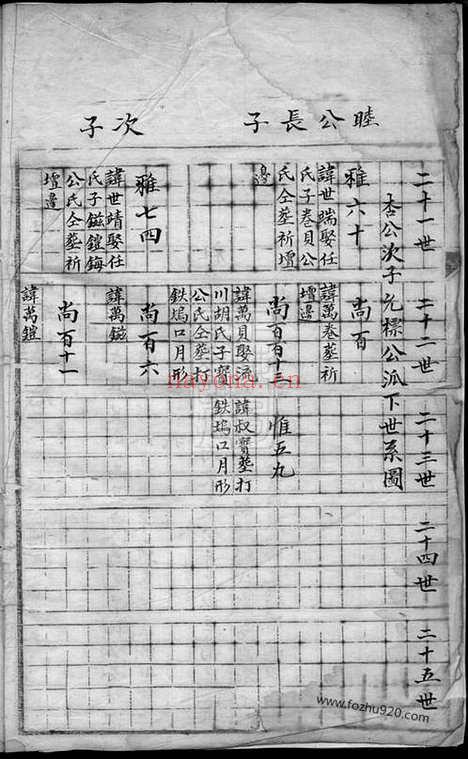 睦公長子
次子
二十一世
二十二世
二十三世
二十四世
二十五世
杏公次子允標公派下世系圖
雅六十
諱世瑞娶任
氏子卷貝公
氏仝塟祈壇
邊
雅七四
諱世靖娶任
氏子鎡鎧鋂
公氏仝塟祈
壇邊
尚百
諱萬卷塟祈
壇邊
尚百十三
諱萬貝娶流
川胡氏子寳
公氏仝塟打
鉄塢口月形
尚百六
諱萬鎡
尚百十一
諱萬鎧
惟五九
諱叔寳塟打
鉄塢口月形
nayona.cn
www.fozhu920.com